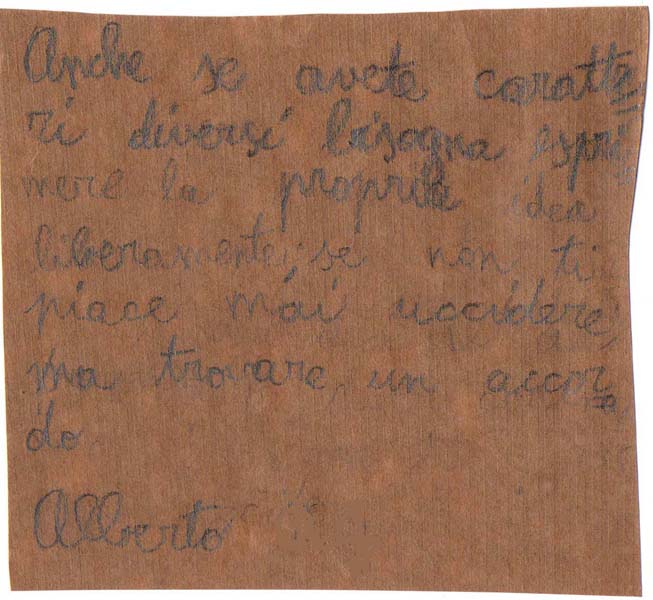 Anche se avete caratte=
ri diversi bisogna espri=
mere la propria idea
liberamente; se non ti
piace mai uccidere,
ma trovare un accor=
do
Alberto